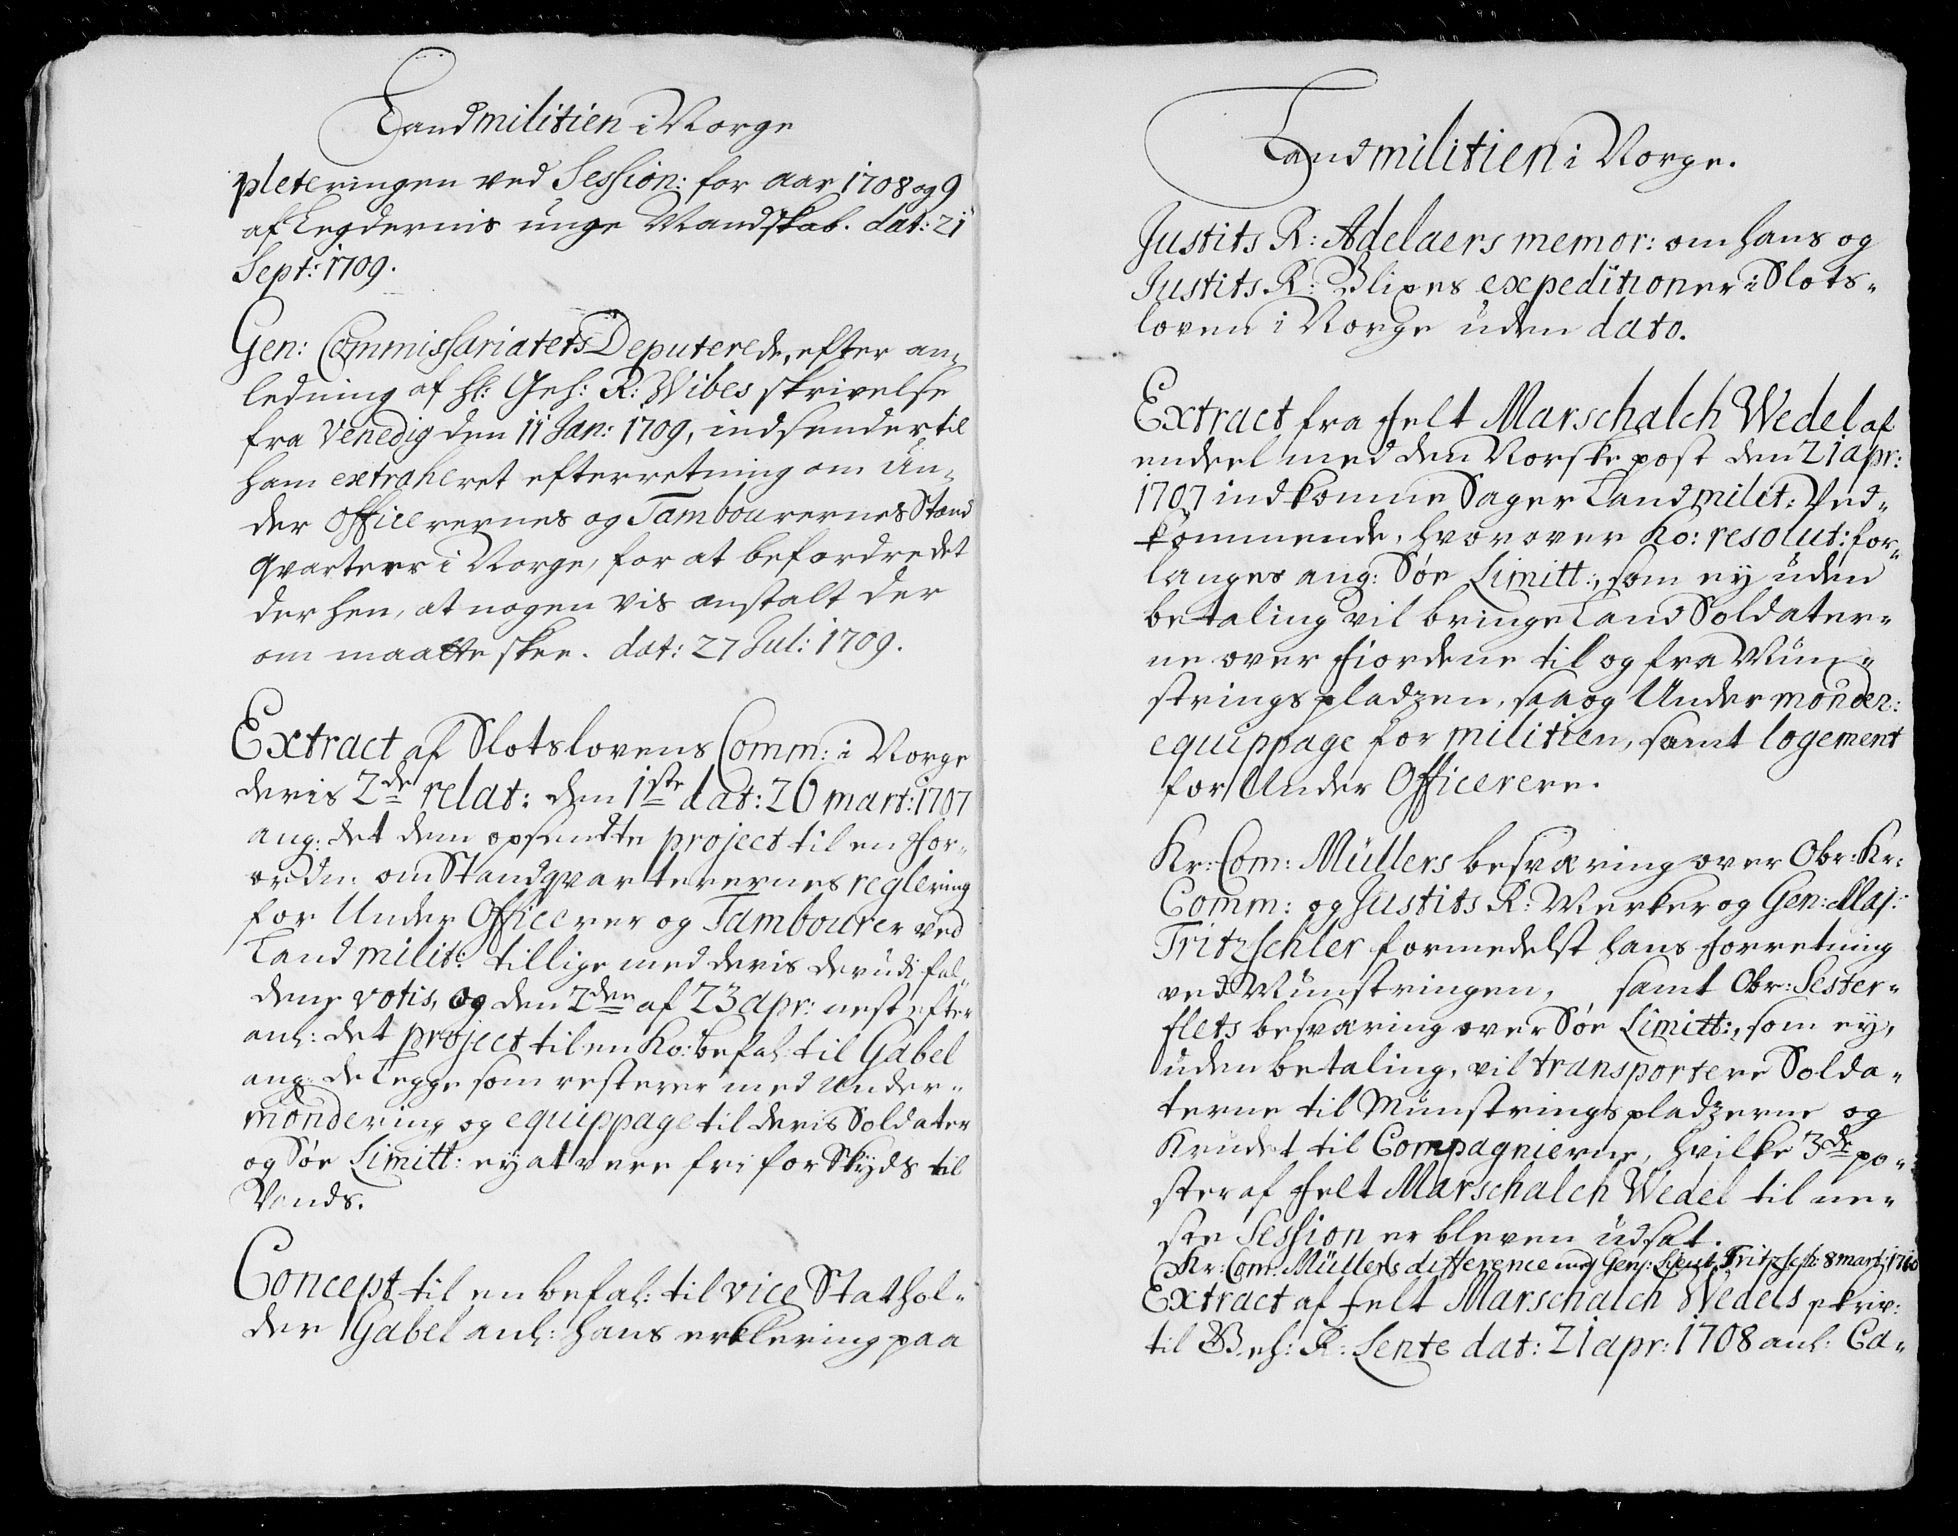 Landmilitien i Norge
pleteringen ved Session: for aar 1708 og 9
af Legdernis unge Mandskab. dat: 21
Sept: 1709.
Gen: Commissariatets Deputerede, efter an-
ledning af H: Geh: R: Wibes skrivelse
fra Venedig den 11 Jan: 1709, indsender til
ham extraheret efterretning om Un-
der Officerernes og Tambourernes Stand
qvarterer i Norge, for at befordre det
derhen, at nogen vis anstalt der
om maatte skee. dat: 27 Jul: 1709.
Extract af Slotslovens Comm: i Norge
deris 2de relat: den 1ste dat: 26 mart: 1707
ang: det dem opsendte project til en for-
ordn: om Standqvarterernes reglering
for Under Officerer og Tambourer ved
Land milit: tillige med deris derudi fal-
dene votis, og den 2den af 23 apr: nest efter
anl: det project til en Ko: befal: til Gabel
ang: de Legge som resterer med Under-
mondering og equippage til deris Soldater
og Söe Limitt: ey at vere fri for Skyds til
Vands.
Concept til en befal: til vice Stathol-
der Gabel anl: hans erklering paa
Landmilitien i Norge.
Justits R: Adelaers memor: om hans og
Justits R: Blixes expeditioner i Slots-
loven i Norge uden dato.
Extract fra Felt Marschalch Wedel af
endeel med den Norske post den 21 apr:
1707 indkomne Sager Land milit: Ved-
kommende, hvorover Ko: resolut: for-
langes ang: Söe Limitt:, som ey uden
betaling vil bringe Land Soldater-
ne over Fiordene til og fra Mün-
strings pladzen, saa og Under monder:
equippage for militien, samt logement
for Under Officerere.
Kr: Com: Müllers besværing over Obr: Kr:
Comm: og Justits R: Werker og Gen: Maj:
Tritzschler formedelst hans forretning
ved Münstringen, samt Obr: Sester-
flets besværing over Söe Limitt:, som ey,
uden betaling, vil transportere Solda-
terne til Munstrings pladzerne og
Krudet til Compagnierne, hvilke 3de po-
ster af Felt Marschalch Wedel til ne-
ste Session er bleven udsat.
Kr: Com: Müllers difference med Gen: Lieut: Tritzsch: 8 mart: 1710
Extract af Felt Marschalch Wedels skriv:
til Geh: R: Lente dat: 21 apr: 1708 anl: Ca-